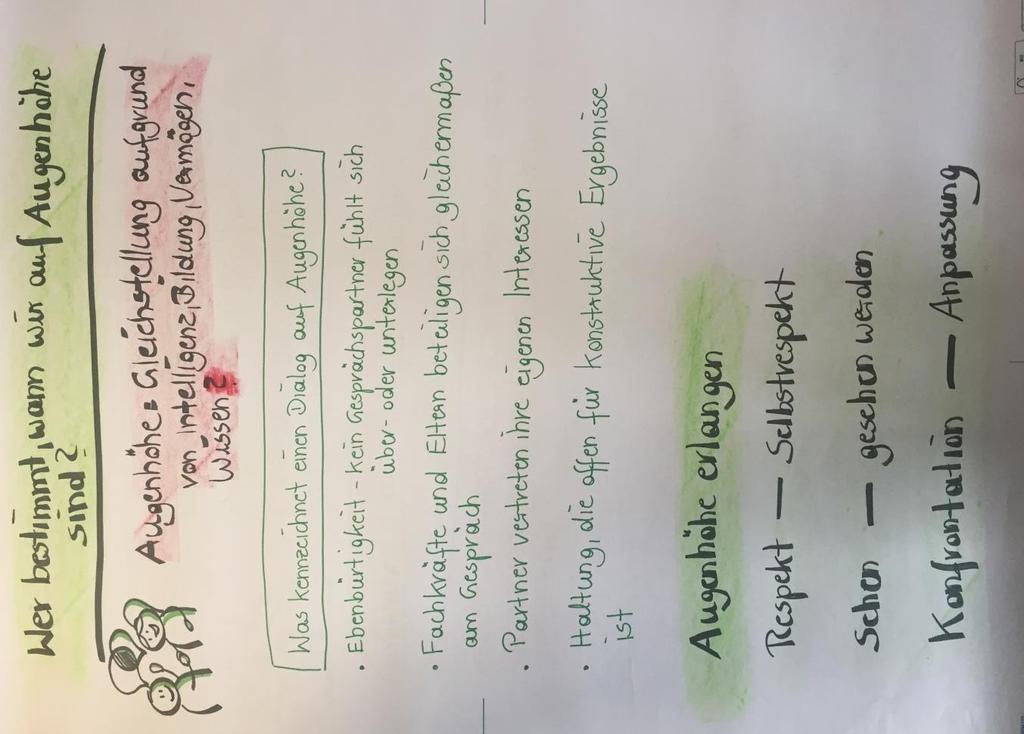 Wer bestimmt, wann wir auf Augenhöhe
sind?
Augenhöhe = Gleichstellung aufgrund
von Intelligenz, Bildung, Vermögen,
Wissen?
Was kennzeichnet einen Dialog auf Augenhöhe?
• Ebenbürtigkeit - kein Gesprächspartner fühlt sich
über- oder unterlegen
• Fachkräfte und Eltern beteiligen sich gleichermaßen
am Gespräch
• Partner vertreten ihre eigenen Interessen
• Haltung, die offen für konstruktive Ergebnisse
ist
Augenhöhe erlangen
Respekt — Selbstrespekt
Sehen — gesehen werden
Konfrontation — Anpassung